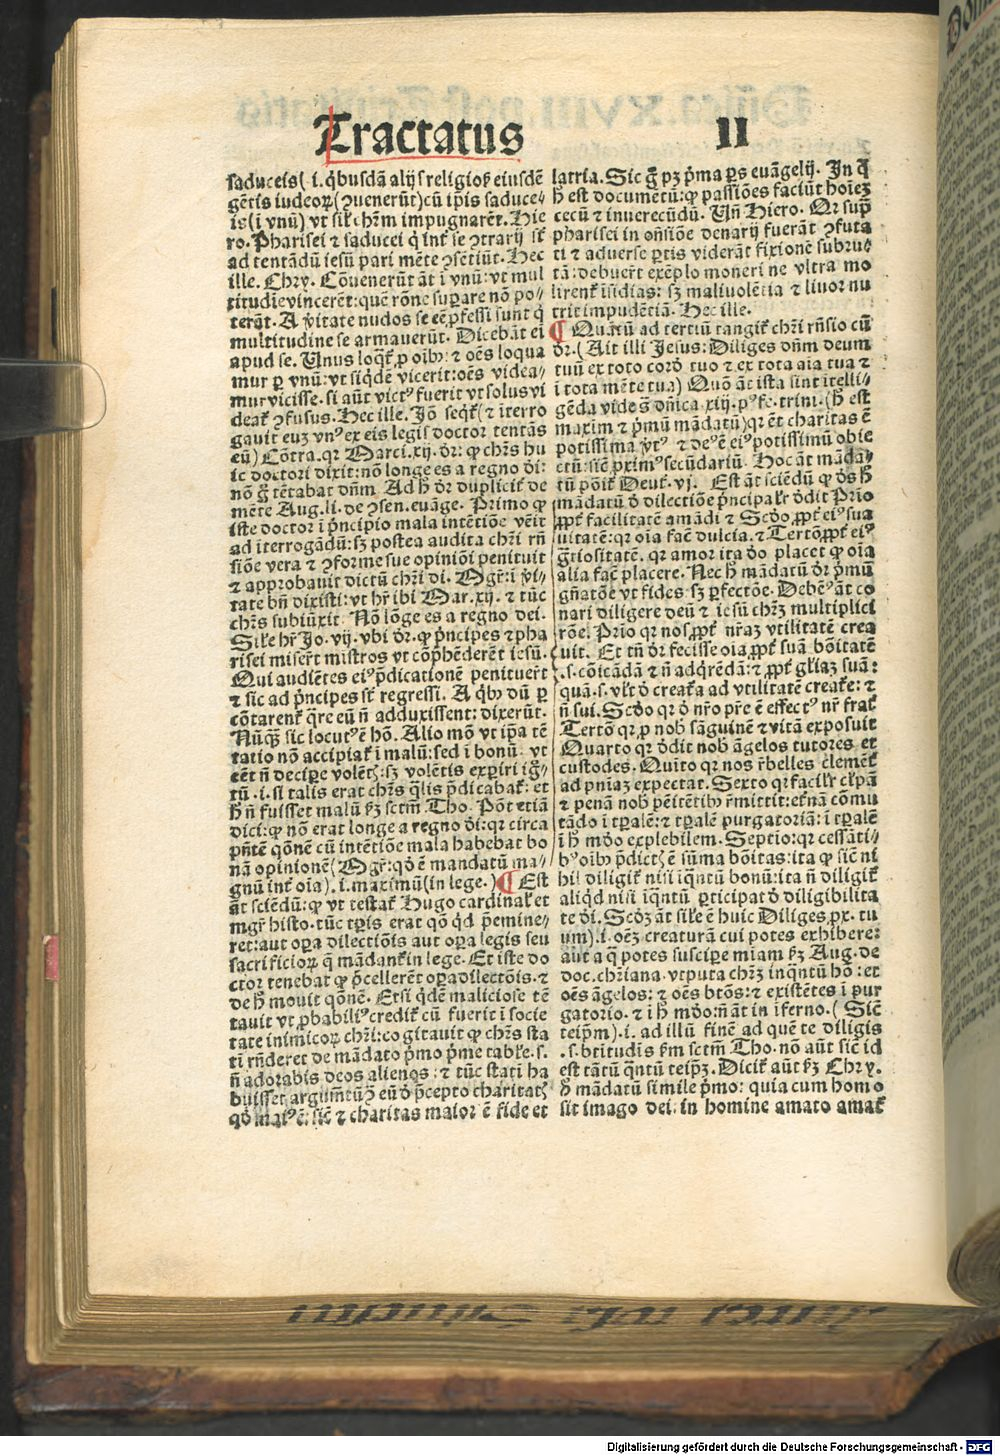 Tractatus II
saduceis(.i. q̇busdā alijs religiosꝫ eiusdē
gētis iudeoꝝ (ꝯuenerūt)cū ip̄is saduce⸗
is(i vnū) vt sil̕ chr̄m impugnarēt. Hie
ro. Pharisei ⁊ saducei q̇ int̕ se ꝯtrarij st̄
ad tentādū iesū pari mēte ꝯsētiūt. Hec
ille. Chry. Cōuenerūt āt i vnū: vt mul
titudie vincerēt: quē rōne suꝑare nō po⸗
terāt. A v̇itate nudos se eē ꝓfessi sunt q̇
multitudine se armauerūt. Dicebāt ei
apud se. Unus loqt̕ ꝓ oībꝰ: ⁊ oēs loqua
mur ꝑ vnū: vt siq̇dē vicerit: oēs videa⸗
mur vicisse. si aūt victꝰ fuerit vt solus vi
deat̕ ꝯfusus. Hec ille. Jō seqt̕(⁊ iterro
gauit euꝫ vnꝰ ex eis legis doctor tentās
eū) Cōtra. qr Marci. xij. dr̄: ꝙ chr̄s hu
ic doctori dixit: nō longe es a regno dī:
nō g̊ tētabat dn̄m. Ad h̄ dr̄ duplicit̕ de
mēte Aug. li. de ꝯsen. euāge. Primo ꝙ
iste doctor i p̄ncipio mala intētiōe vēit
ad iterrogādū: sꝫ postea audita chr̄i rn̄
siōe vera ⁊ ꝯforme sue opiniōi penituit
⁊ approbauit dictū chr̄i di. Mgr̄: i v̇i⸗
tate bn̄ dixisti: vt hr̄ ibi Mar. xij. ⁊ tūc
chr̄s subiūxit. Nō lōge es a regno dei.
Sil̕e hr̄ Jo. vij. vbi dr̄. ꝙ p̄ncipes ⁊ pha
risei miser̄t mīstros vt cōp̄hēderēt iesū.
Qui audiētes eiꝰ p̄dicationē penituer̄t
⁊ sic ad p̄ncipes st̄ regressi. A q̇bꝰ dū ꝑ
cōtarent̕ q̄re eū n̄ adduxissent: dixerūt.
Nūq̄ꝫ sic locutꝰ ē hō. Alio mō vt ip̄a tē
tatio nō accipiat̕ i malū: sed i bonū: vt
eēt n̄ deciꝑe volētꝭ: sꝫ volētis exꝑiri ig̊⸗
tū .i. si talis erat chr̄s q̄lis p̄dicabat̕: et
h̄ n̄ fuisset malū ẜꝫ sctm̄ Tho. Pōt etiā
dici: ꝙ nō erat longe a regno dī: qr circa
pn̄tē qōnē cū intētiōe mala habebat bo
nā opinionē(Mgr̄: qd̓ ē mandatū ma⸗
gnū int̕ oīa) .i. maximū(in lege.) ¶ Est
āt sciēdū: ꝙ vt testat̕ Hugo cardinal̕ et
mgr̄ histo. tūc tꝑis erat qō qd̓ p̄emine⸗
ret: aut oꝑa dilectiōis aut oꝑa legis seu
sacrificioꝝ q̄ mādant̕ in lege. Et iste do
ctor tenebat ꝙ p̄cellerēt oꝑa dilectōis. ⁊
de h̄ mouit qōnē. Etsi q̇dē maliciose tē
tauit vt ꝓbabiliꝰ credit̕ cū fuerit i socie
tate inimicoꝝ chr̄i: cogitauit ꝙ chr̄s sta
tī rn̄deret de mādato p̄mo p̄me tabl̕e. s.
n̄ adorabis deos alienos: ⁊ tūc statī ha
buisset argumtū ꝯ eū d̓ p̄cepto charitatꝭ
qd̓ maiꝰ ē: sic̄ ⁊ charitas maior ē fide et
latria. Sic g̊ pꝫ p̄ma ꝑs euāgelij. In q̊
h̄ est documētū: ꝙ passiōes faciūt hoīeꝫ
cecū ⁊ inuerecūdū. Un̄ Hiero. Qr suꝑ̄
pharisei in on̄siōe denarij fuerāt ꝯfuta
ti ⁊ aduerse ꝑtis viderāt fixionē subru⸗
tā: debuer̄t exēplo moneri ne vltra mo
lirent̕ īsidias: sꝫ maliuolētia ⁊ liuor nu
trit impudētiā. Hec ille.
¶ Quātū ad tertiū tangit̕ chr̄i rn̄sio cū
dr̄. (Ait illi Jesus: Diliges dn̄m deum
tuū ex toto cord̓ tuo ⁊ ex tota aīa tua ⁊
i tota mēte tua) Quō āt ista sint itelli⸗
gēda vide s̄ dn̄ica xiij. pꝰ fe. trini. (h̄ est
maxim̄ ⁊ p̄mū mādatū)qr ēt charitas ē
potissima v̇tꝰ ⁊ deꝰ ē eiꝰ potissimū obie
ctū: sic̄ ꝓximꝰ secūdariū. Hoc āt māda⸗
tū pōit̕ Deut̕. vj. Est āt sciēdū ꝙ dꝰ h̄
mādatū d̓ dilectiōe p̄ncipal̕r d̓dit Prīo
ꝓpt̕ facilitatē amādi ⁊ Scd̓o ꝓpt̕ eiꝰ sua
uitatē: qr oīa fac̄ dulcia. ⁊ Tertō ꝓpt̕ eiꝰ
gr̄tiositatē. qr amor ita d̓o placet ꝙ oīa
alia fac̄ placere. Nec h̄ mādatū dr̄ p̄mū
gn̄atōe vt fides: sꝫ ꝑfectōe. Debēꝰ āt co
nari diligere deū ⁊ iesū chr̄ꝫ multiplici
rōe. Prīo qr nos ꝓpt̕ nr̄aꝫ vtilitatē crea
uit. Et tn̄ dr̄ fecisse oīa ꝓpt̕ suā bōitatē
.s. cōicādā ⁊ n̄ adq̄rēdā: ⁊ ꝓpt̕ gl̕iaꝫ suā:
quā .s. vl̕t d̓ creat̕a ad vtilitatē creat̕e: ⁊
n̄ sui. Scd̓o qr d̓ nr̄o pr̄e ē effectꝰ nr̄ frat̕
Tertō qr ꝓ nob̄ sāguinē ⁊ vitā exposuit
Quarto qr d̓dit nob̄ āgelos tutores et
custodes. Quīto qr nos r̄belles clemēt̕
ad pn̄iaꝫ expectat. Sexto qr facil̕r cl̕pā
⁊ penā nob̄ pēitētibꝰ r̄mittit: et̕nā cōmu
tādo i tꝑalē: ⁊ tꝑalē purgatoriā: i tꝑalē
i h̄ mūdo explebilem. Septio: qr cessāti⸗
bꝰ oībꝰ p̄dictꝭ ē sūma bōitas: ita ꝙ sic̄ ni
hil diligit̕ nisi iqn̄tū bonū: ita n̄ diligit̕
aliqd̓ nisi iqn̄tū ꝑticipat d̓ diligibilita
te dī. Scd̓ꝫ āt sil̕e ē huic Diliges ꝓx. tu
um) .i. oēꝫ creaturā cui potes exhibere:
aut a q̊ potes susciꝑe mīam ẜꝫ Aug. de
doc. chr̄iana. vtputa chr̄ꝫ inqn̄tū hō: et
oēs āgelos: ⁊ oēs btōs: ⁊ existētes i pur
gatorio. ⁊ i h̄ mūdo: n̄ āt in iferno. (Sic̄
teip̄m) .i. ad illū finē ad quē te diligis
.s. btitudīs ẜm sctm̄ Tho. nō aūt sic̄ id
est tātū qn̄tū teip̄ꝫ. Dicit̕ aūt ẜꝫ Chry.
h̄ mādatū simile p̄mo: quia cum homo
sit imago dei: in homine amato amat̕
Digitalisierung gefördert durch die Deutsche Forschungsgemeinschaft - DFG